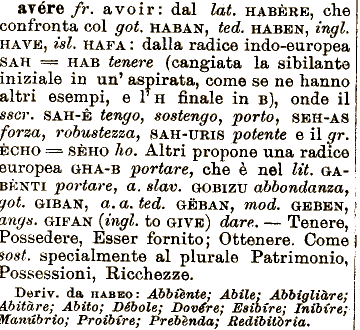 avére fr. avoir: dal lat. HABÈRE, che
confronta col got. HABAN, ted. HABEN, ingl.
HAVE, isl. HAFA: dalla radice indo-europea
SAH = HAB tenere (cangiata la sibilante
iniziale in un' aspirata, come se ne hanno
altri esempi, e l'H finale in B), onde il
sscr. SAH-Ê tengo, sostengo, porto, SEH-AS
forza, robustezza, SAH-URIS potente e il gr.
ÈCHO = SÈHO ho. Altri propone una radice
europea GHA-B portare, che è nel lit. GA-
BÈNTI portare, a. slav. GOBIZU abbondanza,
got. GIBAN, a. a. ted. GËBAN, mod. GEBEN,
angs. GIFAN (ingl. to GIVE) dare. — Tenere,
Possedere, Esser fornito; Ottenere. Come
sost. specialmente al plurale Patrimonio,
Possessioni, Ricchezze.
Deriv. da HABEO: Abbiènte; Abile; Abbigliàre;
Abitàre; Abito; Débole; Dovére; Esibíre; Inibíre;
Manúbrio; Proibíre; Prebènda; Redibitòria.